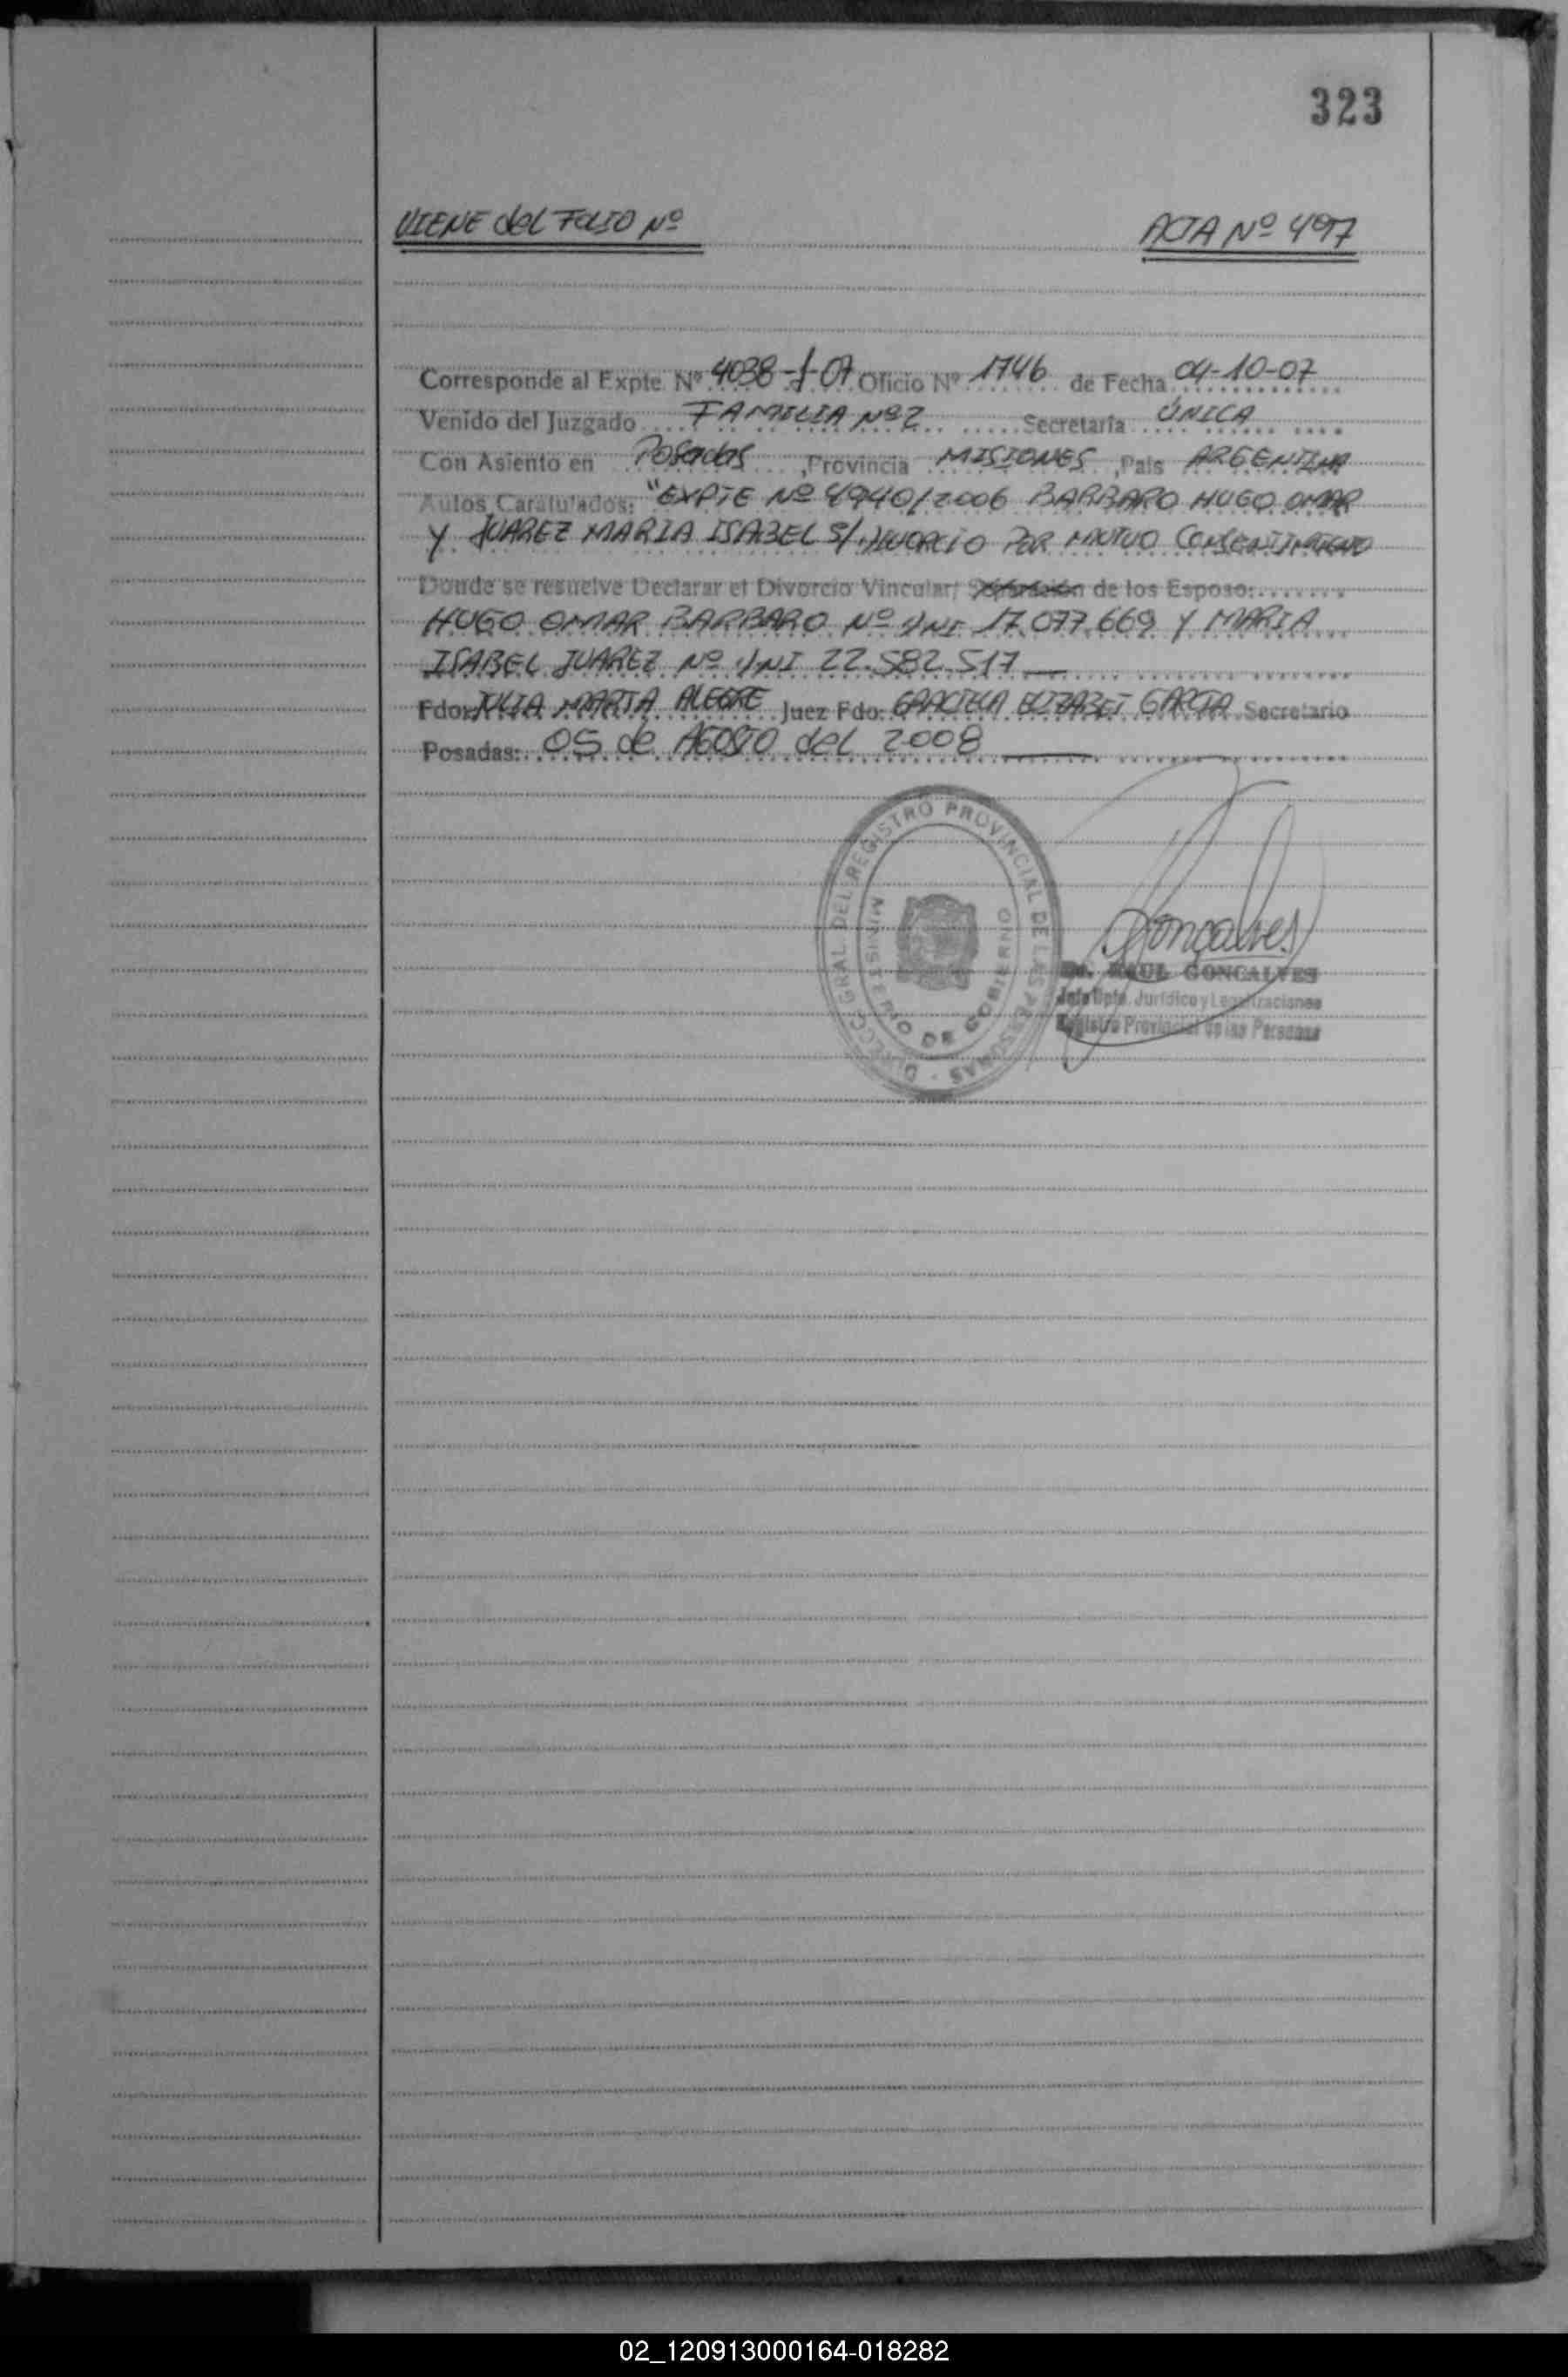 323
VIENE del FOLIO Nº
ACTA Nº 497
Corresponde al Expte. Nº 4038-J-07 Oficio Nº 1746 de Fecha 04-10-07
Venido del Juzgado FAMILIA Nº 2 Secretaría ÚNICA
Con Asiento en Posadas, Provincia MISIONES, País ARGENTINA
Autos Caratulados: "EXPTE Nº 4940/2006 BARBARO HUGO OMAR
Y JUAREZ MARIA ISABEL S/ DIVORCIO POR MUTUO CONSENTIMIENTO
Donde se resuelve Declarar el Divorcio Vincular/ Separación de los Esposo:
HUGO OMAR BARBARO Nº DNI 17.077.669 Y MARIA
ISABEL JUAREZ Nº DNI 22.582.517
Fdo: JULIA MARTA ALEGRE Juez Fdo: GRACIELA ELIZABET GARCIA Secretario
Posadas: 05 de AGOSTO del 2008
DIRECC. GRAL. DEL REGISTRO PROVINCIAL DE LAS PERSONAS
MINISTERIO DE GOBIERNO
Gonçalves
Dr. RAUL GONCALVES
Jefe Dpto. Jurídico y Legalizaciones
Registro Provincial de las Personas
02_120913000164-018282